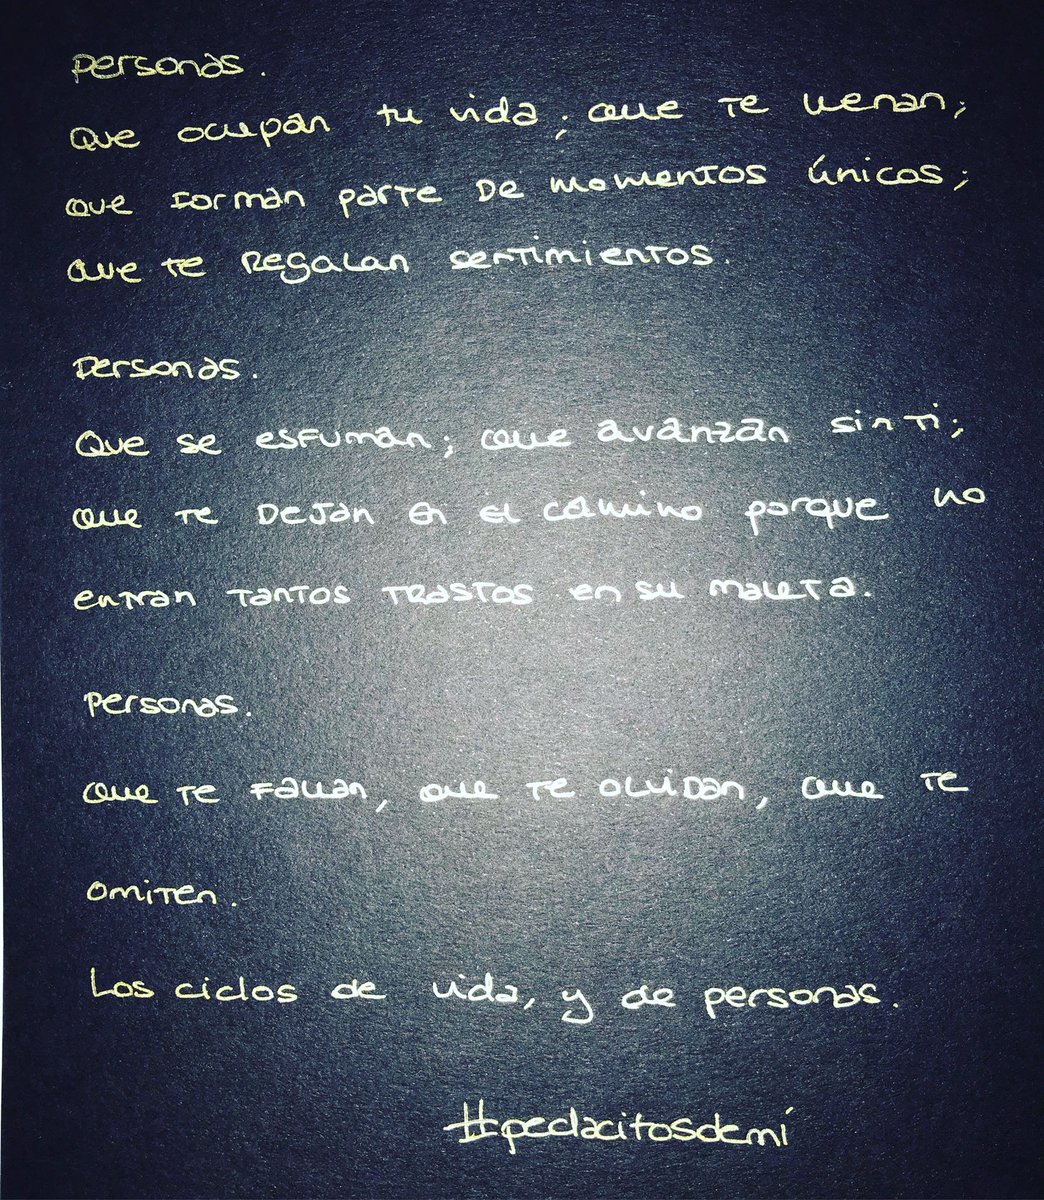 Personas.
Que ocupan tu vida; que te llenan;
que forman parte de momentos únicos;
que te regalan sentimientos.
Personas.
Que se esfuman; que avanzan sin ti;
que te dejan en el camino porque no
entran tantos trastos en su maleta.
Personas.
que te fallan, que te olvidan, que te
omiten.
Los ciclos de vida, y de personas.
#pedacitosdemí